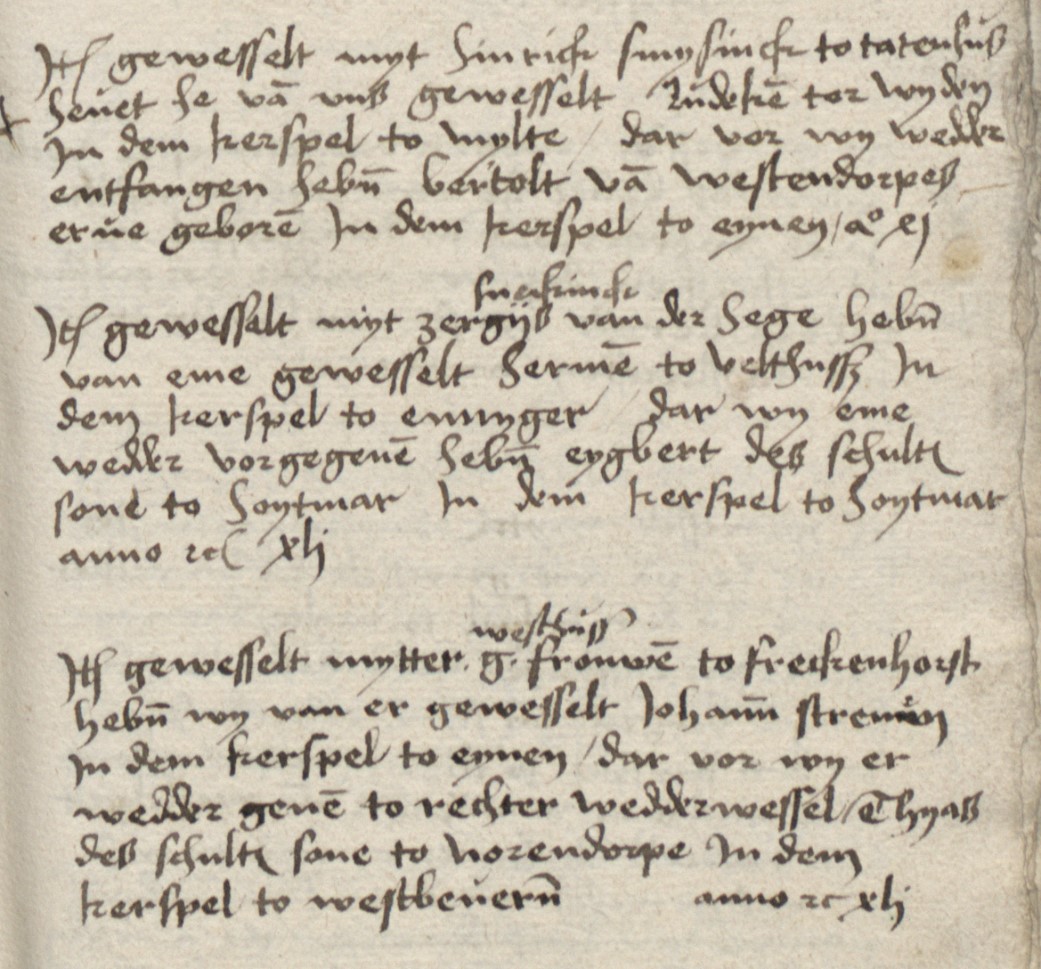 Itē gewesselt myt Hinrick smysinck to tatenhus
heuet he vā vns gewesselt Ludekē tor wyden
In dem kerspel to mylte / dar vor wy wedder
entfangen hebn̄ bertolt vā westendorpes
erue geborē In dem kerspel to eynen / aº xlj
Itē gewesselt myt zergijs van der Hege hebn̄
van eme gewesselt Hermē to velthussz In
dem kerspel to emmyger / dar wy eme
wedder vorgegeuē hebn̄ eygbert des schultē
sone to Hoytmar In dem kerspel to Hoytmar
anno rc xlj
westhuss
Itē gewesselt mytter . g . frouwē to freckenhorst
hebn̄ wy van er gewesselt Johan̄ stremen
In dem kerspel to eynen / dar vor wy er
wedder geuē to rechter wedderwessel / Thyas
des schultē sone to norendorpe In dem
kerspel to westbeuern̄ anno rc xlj